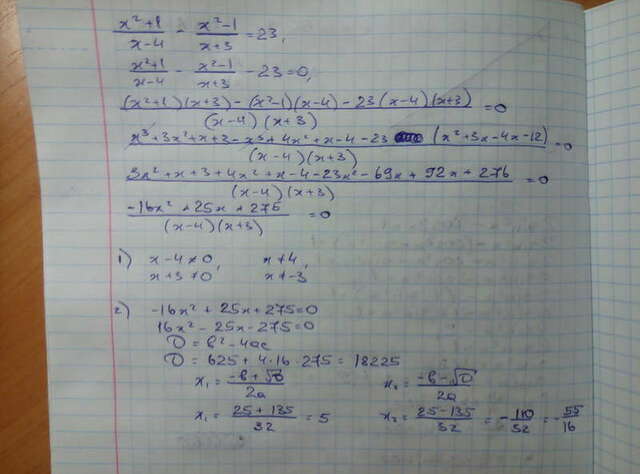 x²+1/x-4 - x²-1/x+3 = 23,
x²+1/x-4 - x²-1/x+3 - 23 = 0,
(x²+1)(x+3) - (x²-1)(x-4) - 23(x-4)(x+3)/(x-4)(x+3) = 0
x³+3x²+x+3-x³+4x²+x-4-23(x²+3x-4x-12)/(x-4)(x+3) = 0
3x²+x+3+4x²+x-4-23x²-69x+92x+276/(x-4)(x+3) = 0
-16x²+25x+275/(x-4)(x+3) = 0
1) x-4≠0, x≠4,
x+3≠0, x≠-3
2) -16x²+25x+275=0
16x²-25x-275=0
D = b²-4ac
D = 625+4·16·275 = 18225
x₁ = -b+√D/2a x₂ = -b-√D/2a
x₁ = 25+135/32 = 5 x₂ = 25-135/32 = -110/32 = -55/16